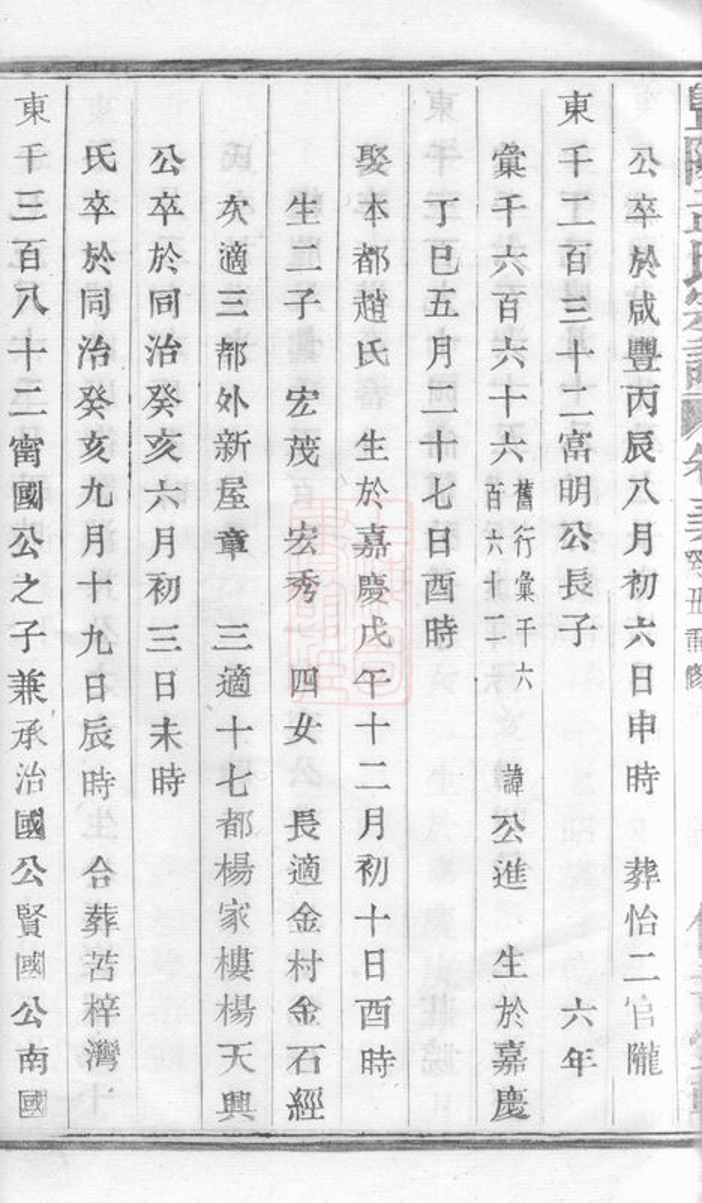 公卒於咸豐丙辰八月初六日申時 葬怡二官隴
東千二百三十二富明公長子 六年
彙千六百六十六舊行彙千六百六十二 諱公進 生於嘉慶
丁巳五月二十七日酉時
娶本都趙氏 生於嘉慶戊午十二月初十日酉時
生二子 宏茂 宏秀 四女 長適金村金石經
次適三都外新屋章 三適十七都楊家樓楊天興
公卒於同治癸亥六月初三日未時
氏卒於同治癸亥九月十九日辰時 合葬苦梓灣
東千三百八十二甯國公之子兼承治國公賢國公南國